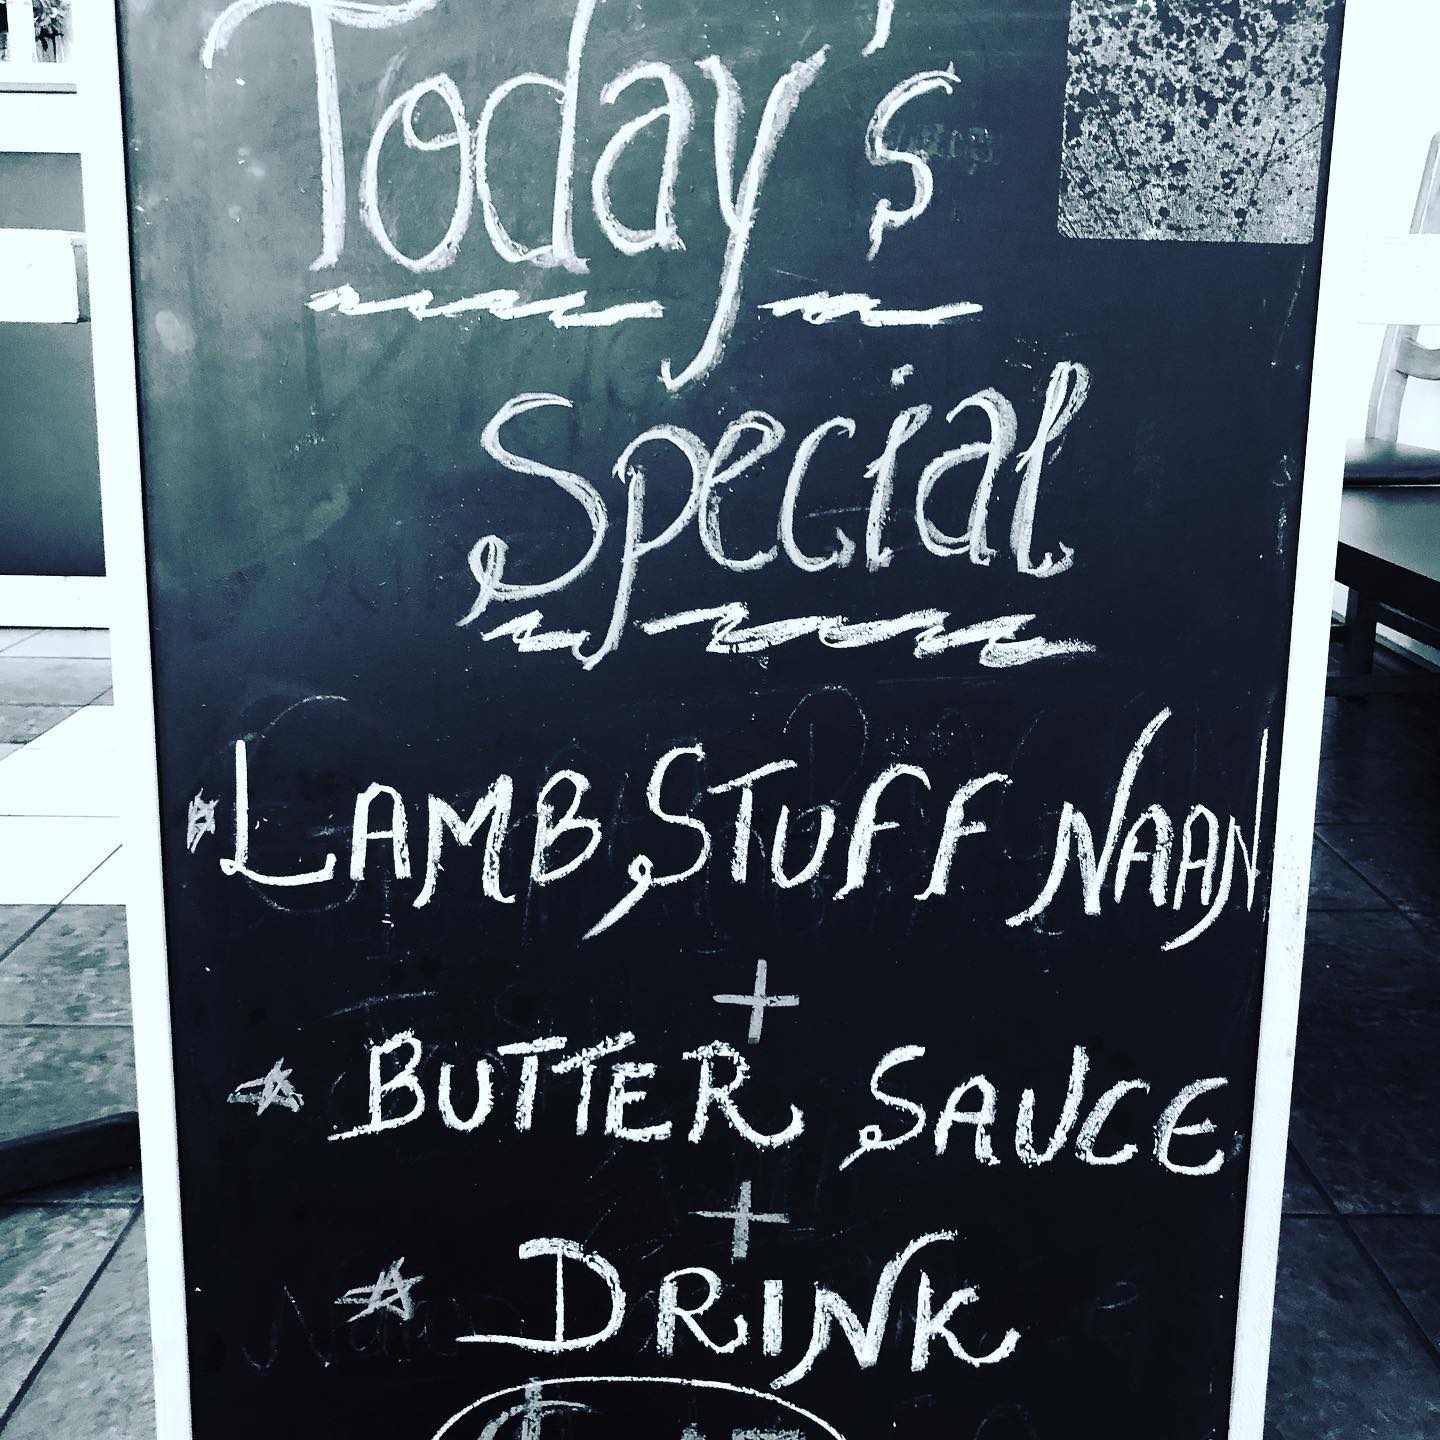 Today's
Special
LAMB STUFF NAAN
+
BUTTER SAUCE
+
DRINK